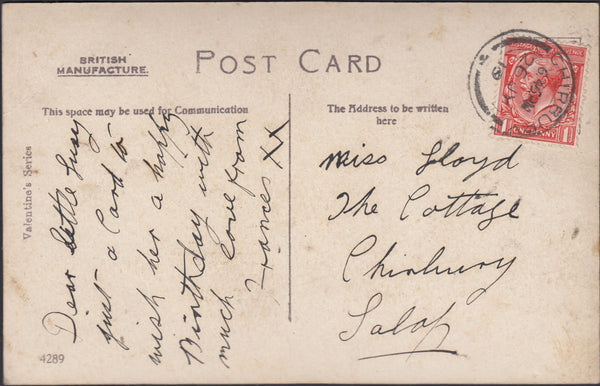 BRITISH
MANUFACTURE.
POST CARD
This space may be used for Communication
The Address to be written
here
Valentine's Series
Dear little
just a Card to
wish her a happy
Birthday with
much love from
Frances XX
Miss Lloyd
The Cottage
Chirbury
Salop
4289
CHIRBURY
1D